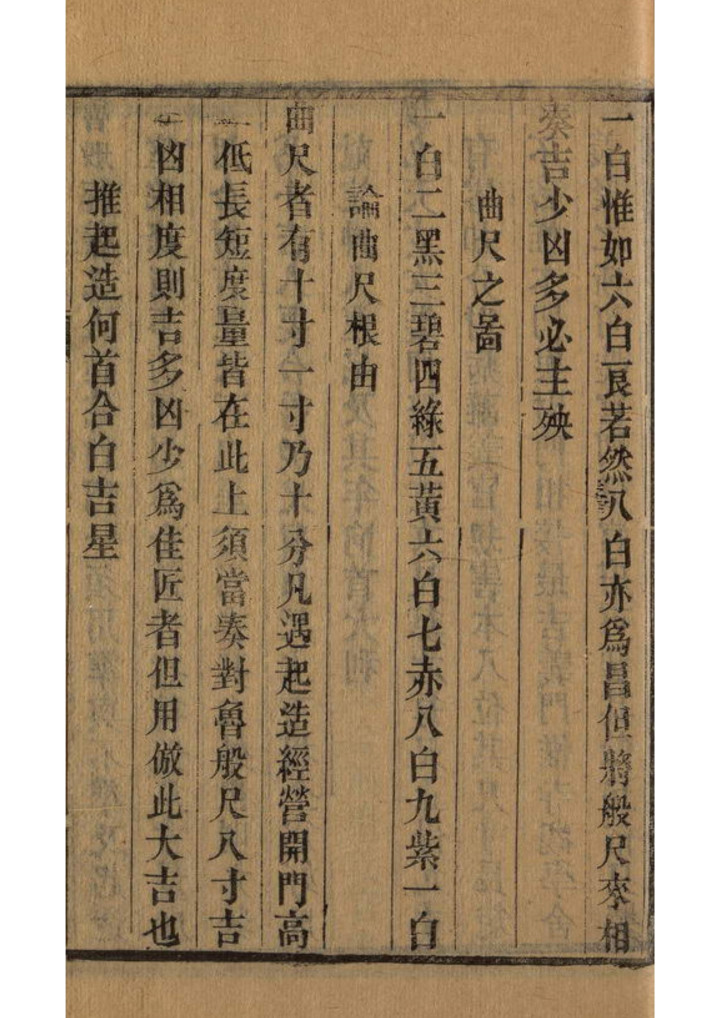 一白惟如六白良若然八白亦爲昌但將般尺來相
奏吉少凶多必主殃
曲尺之啚
一白二黑三碧四綠五黃六白七赤八白九紫一白
論曲尺根由
曲尺者有十寸一寸乃十分凡遇起造經營開門高
低長短度量皆在此上須當奏對魯般尺八寸吉
凶相度則吉多凶少爲佳匠者但用倣此大吉也
推起造何首合白吉星